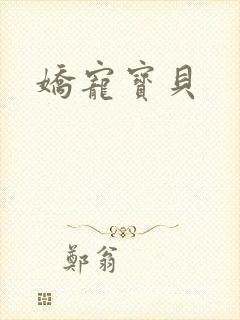 嬌寵寶貝
鄭翁